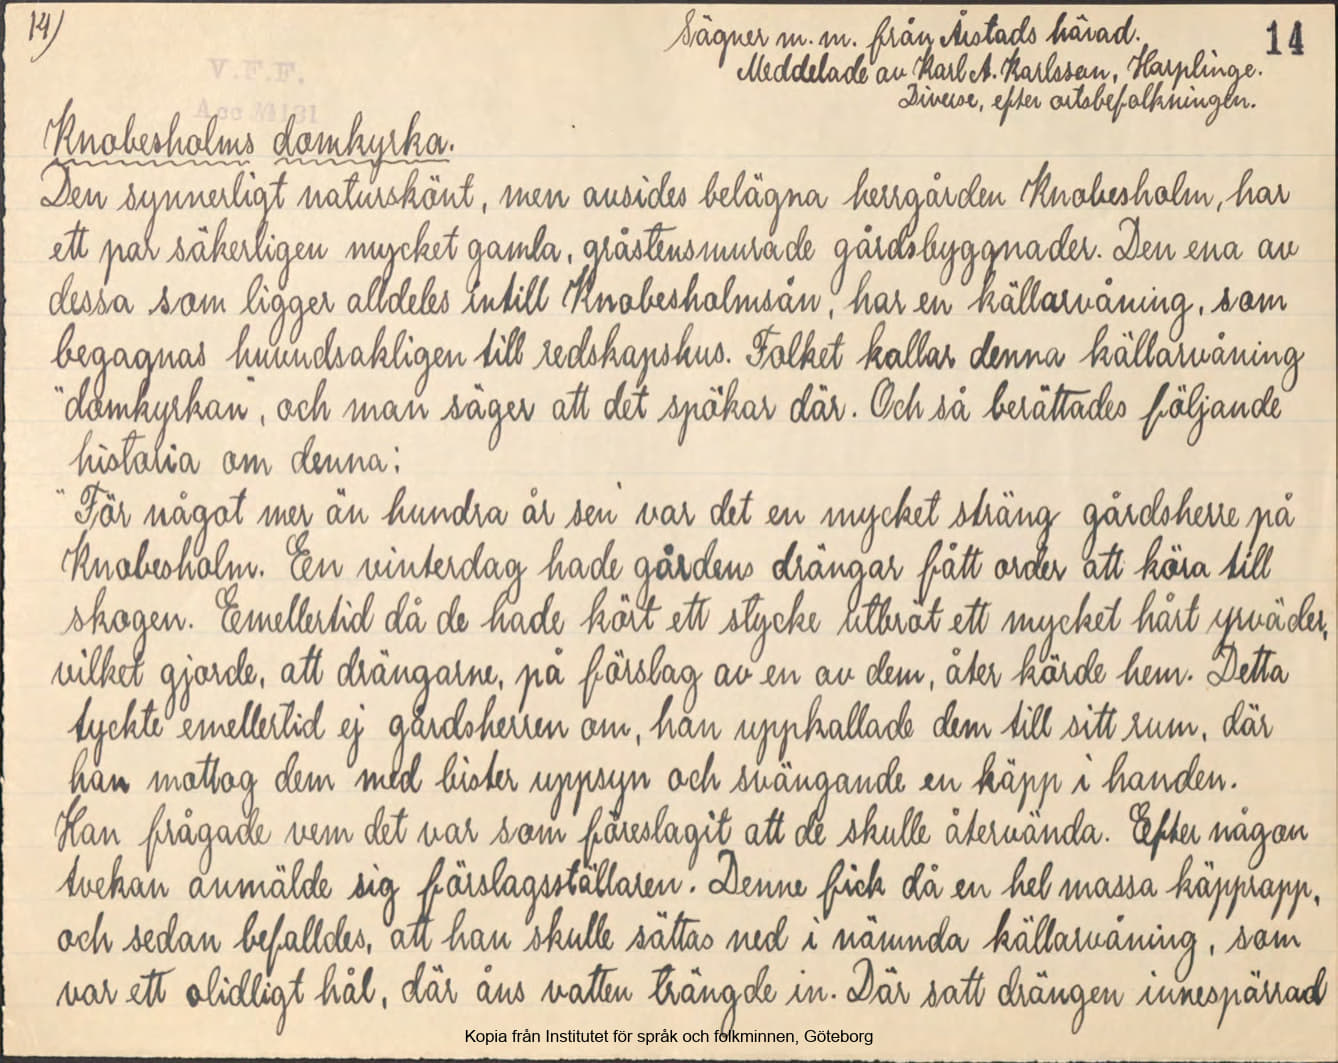 14)
Sägner m.m. från Årstads härad.
14
Meddelade av Karl A. Karlsson, Harplinge.
Diverse, efter ortsbefolkningen.
V.F.F.
Acc M 131
Knobesholms domkyrka.
Den synnerligt naturskönt, men avsides belägna herrgården Knobesholm, har
ett par säkerligen mycket gamla, gråstensmurade gårdsbyggnader. Den ena av
dessa som ligger alldeles intill Knobesholmsån, har en källarvåning, som
begagnas huvudsakligen till redskapshus. Folket kallar denna källarvåning
"domkyrkan", och man säger att det spökar där. Och så berättades följande
historia om denna:
"För något mer än hundra år sen' var det en mycket sträng gårdsherre på
Knobesholm. Een vinterdag hade gårdens drängar fått order att köra till
skogen. Emellertid då de hade kört ett stycke utbröt ett mycket hårt yrväder,
vilket gjorde, att drängarne, på förslag av en av dem, åter körde hem. Detta
tyckte emellertid ej gårdsherren om, han uppkallade dem till sitt rum, där
han mottog dem med bister uppsyn och svängande en käpp i handen.
Han frågade vem det var som föreslagit att de skulle återvända. Efter någon
tvekan anmälde sig förslagsställaren. Denne fick då en hel massa käpprapp,
och sedan befalldes, att han skulle sättas ned i nämnda källarvåning, som
var ett olidligt hål, där åns vatten trängde in. Där satt drängen innespärrad
Kopia från Institutet för språk och folkminnen, Göteborg